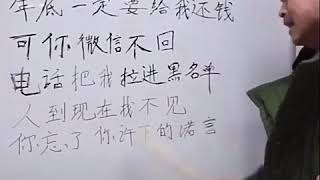 年底一定要给我还钱
可你微信不回
电话把我拉进黑名单
人到现在找不见
你忘了你许下的诺言